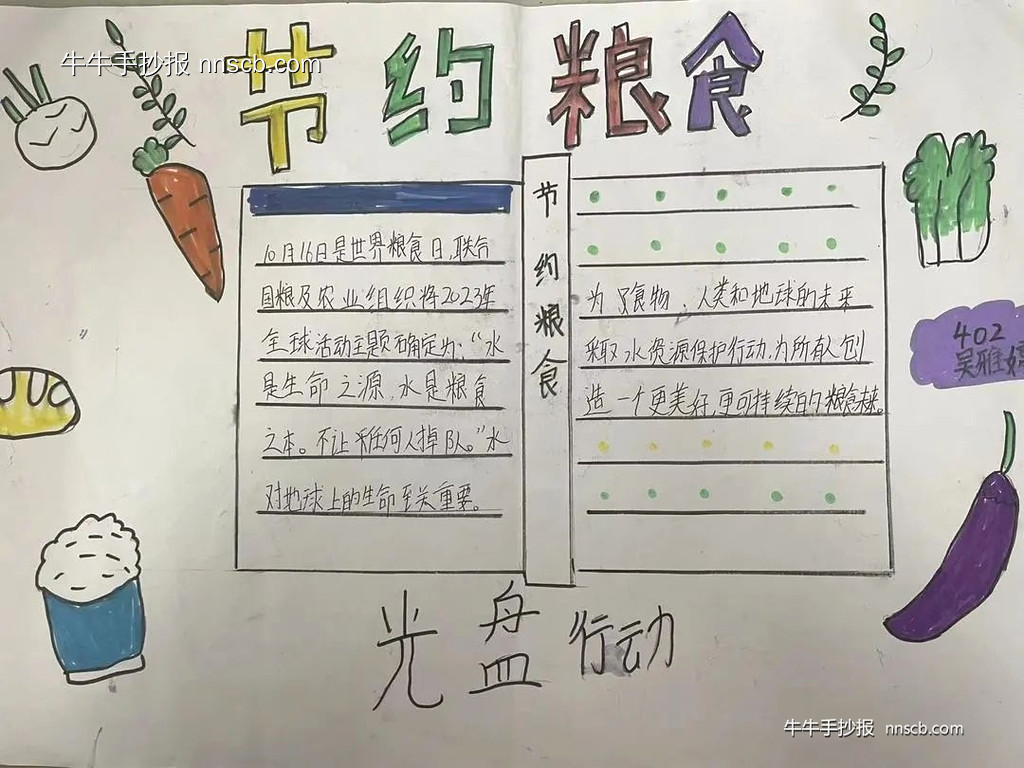 牛牛手抄报 nnscb.com
节约粮食
10月16日是世界粮食日,联合
国粮及农业组织将2023年
全球活动主题确定为:“水
是生命之源,水是粮食
之本。不让任何人掉队。”水
对地球上的生命至关重要。
节约粮食
为了食物、人类和地球的未来
采取水资源保护行动,为所有人创
造一个更美好,更可持续的粮食未来。
402
吴雅婷
光盘行动
牛牛手抄报 nnscb.com